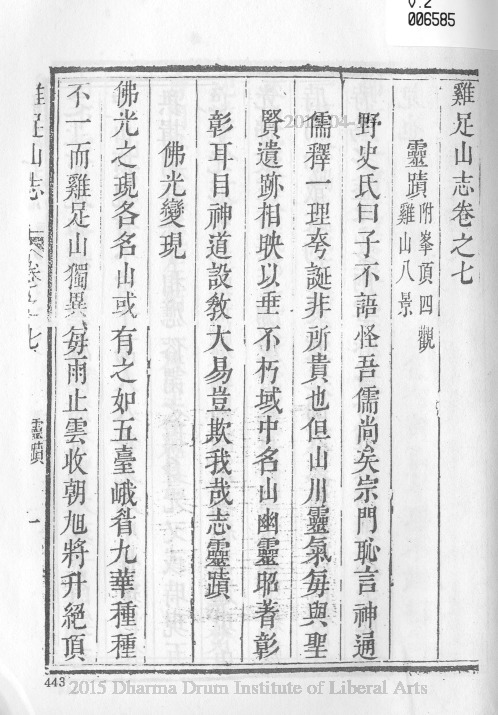 V.2
006585
雞足山志卷之七
靈蹟 附峯頂四觀 雞山八景
野史氏曰子不語怪吾儒尚矣宗門恥言神通
儒釋一理夸誕非所貴也但山川靈氣每與聖
賢遺跡相映以垂不朽域中名山幽靈昭著彰
彰耳目神道設教大易豈欺我哉志靈蹟
佛光變現
佛光之現各名山或有之如五臺峨眉九華種種
不一而雞足山獨異每雨止雲收朝旭將升絕頂
雞足山志 卷之七 靈蹟 一
443 2015 Dharma Drum Institute of Liberal Arts